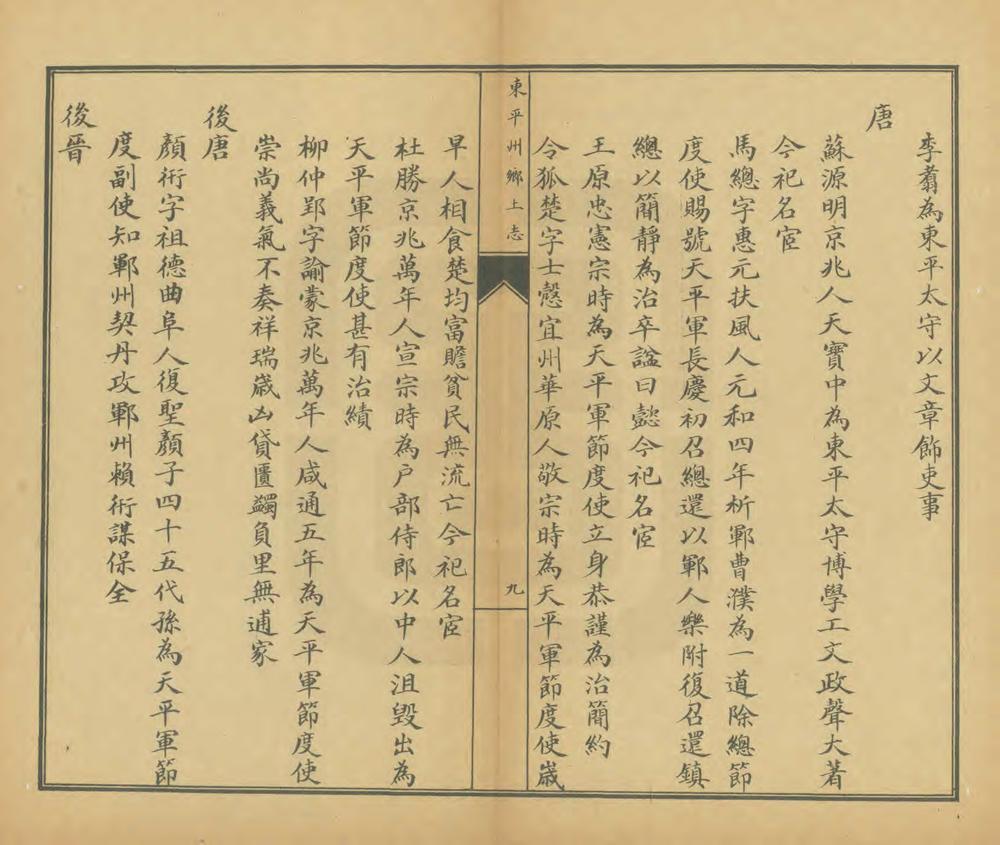 李翥為東平太守以文章飾吏事
唐
蘇源明京兆人天寶中為東平太守博學工文政聲大著
今祀名宦
馬總字惠元扶風人元和四年析鄆曹濮為一道除總節
度使賜號天平軍長慶初召總還以鄆人樂附復召還鎮
總以簡靜為治卒諡曰懿今祀名宦
王原忠憲宗時為天平軍節度使立身恭謹為治簡約
令狐楚字士慤宜州華原人敬宗時為天平軍節度使嵗
東平州鄉土志
九
早人相食楚均富贍貧民無流亡今祀名宦
杜勝京兆萬年人宣宗時為户部侍郎以中人沮毀出為
天平軍節度使甚有治績
柳仲郢字諭蒙京兆萬年人咸通五年為天平軍節度使
崇尚義氣不奏祥瑞嵗凶貸匱蠲負里無逋家
後唐
顏衎字祖德曲阜人復聖顏子四十五代孫為天平軍節
度副使知鄆州契丹攻鄆州賴衎謀保全
後晉